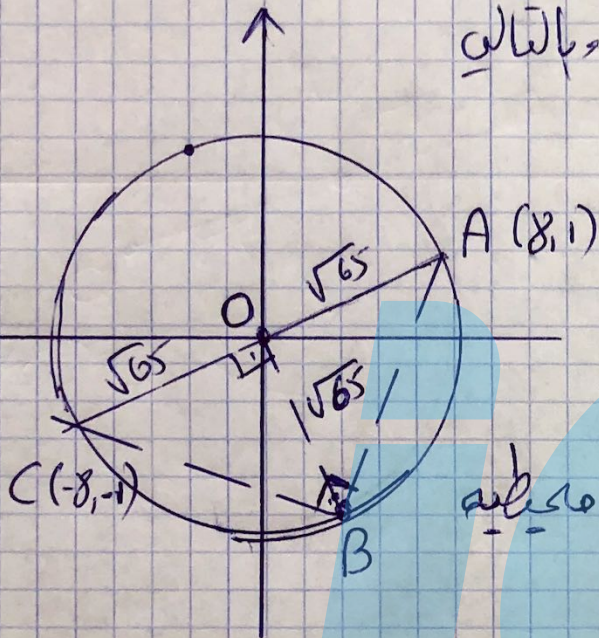 وبالتالي
A (8,1)
√65
O
√65
√65
C(-8,-1)
محيطيه
B